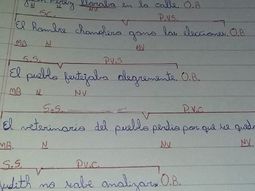 Juan Pérez lloraba en la calle. O.B.
S.S. P.V.S.
El hombre chanchero gano las elecciones. O.B.
MD. N NV
S.S. P.V.S.
El pueblo festejaba alegremente. O.B.
MD. N NV
S.S. P.V.C
El veterinario del pueblo perdio por que se
MD. N NV NV
S.S. P.V.C.
Judith no sabe analizar O.B.